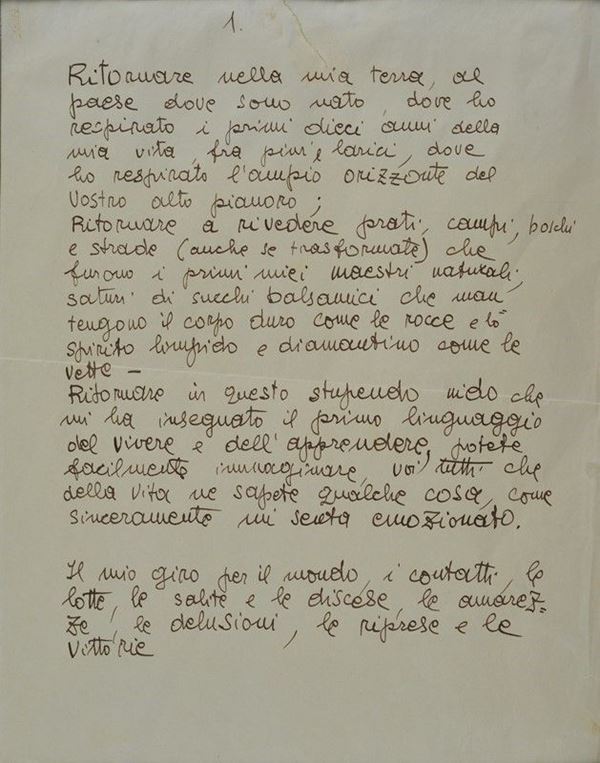 1.
Ritornare nella mia terra, al
paese dove sono nato, dove ho
respirato i primi dieci anni della
mia vita, fra pini e larici, dove
ho respirato l'ampio orizzonte del
Vostro alto pianoro;
Ritornare a rivedere prati, campi, boschi
e strade (anche se trasformate) che
furono i primi miei maestri naturali,
saturi di succhi balsamici che man
tengono il corpo duro come le rocce e lo
spirito limpido e diamantino come le
vette —
Ritornare in questo stupendo nido che
mi ha insegnato il primo linguaggio
del vivere e dell'apprendere, potete
facilmente immaginare, voi tutti che
della vita ne sapete qualche cosa, come
sinceramente mi senta emozionato.
Il mio giro per il mondo, i contatti, le
lotte, le salite e le discese, le amarez=
ze, le delusioni, le riprese e le
vittorie